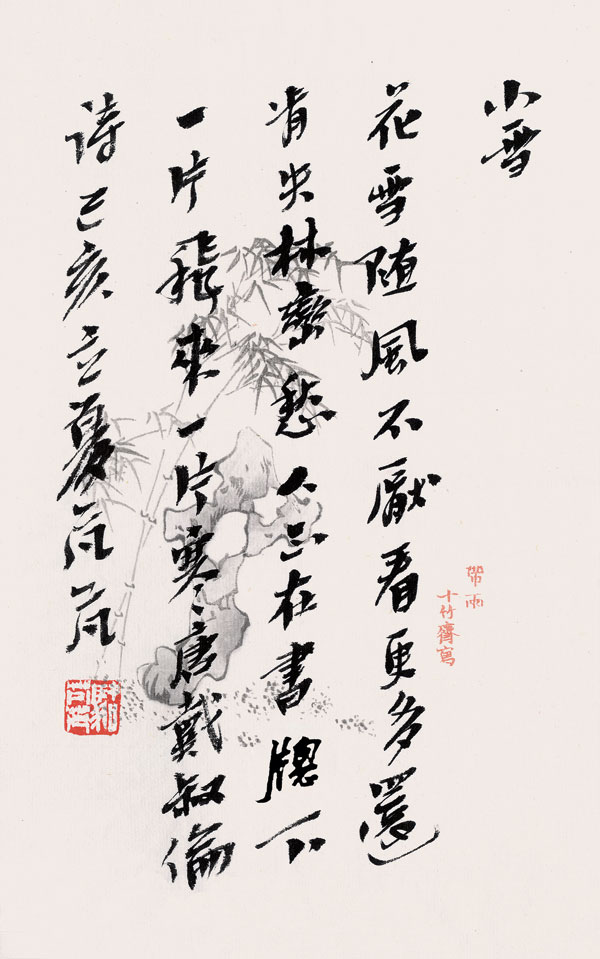 小雪
花雪随風不厭看更多還
肯失林巒愁人正在書牕下
一片飛來一片寒唐戴叔倫
詩己亥立夏
帶雨
十竹齋寫